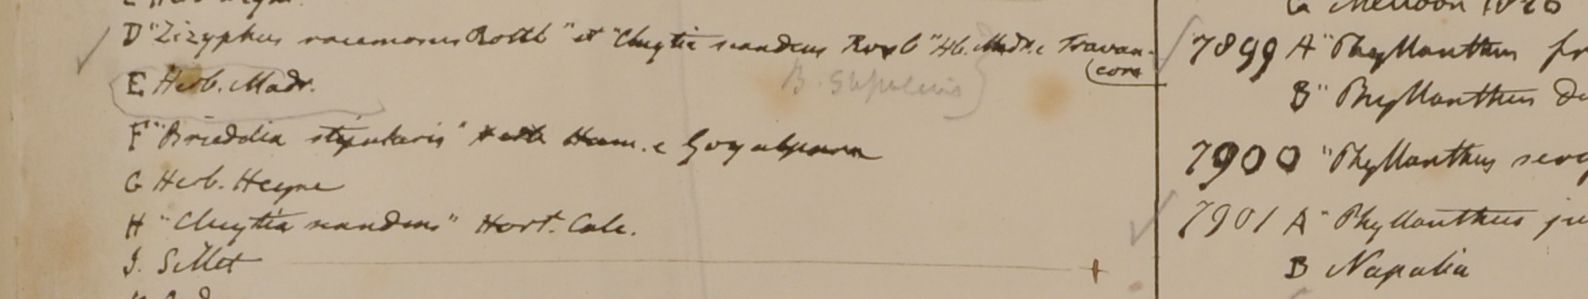 D "Zizyphus racemosus Rottl" et "Cluytia scandens Roxb" Hb. Madr. e Travan-
(core
E Herb. Madr.
B. Stipularis
F "Briedelia stipularis" Ham. e Goyalpara
G Herb. Heyne
H "Cluytia scandens" Hort. Calc.
I. Sillet
7899 A "Phyllanthus
B "Phyllanthus
7900 "Phyllanthus
7901 A "Phyllanthus
B Napalia